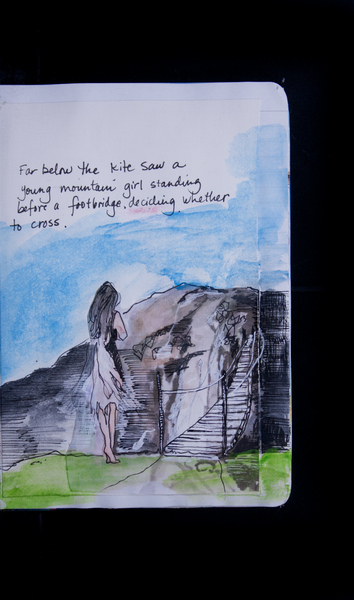 Far below the kite saw a
young mountain girl standing
before a footbridge, deciding whether
to cross.